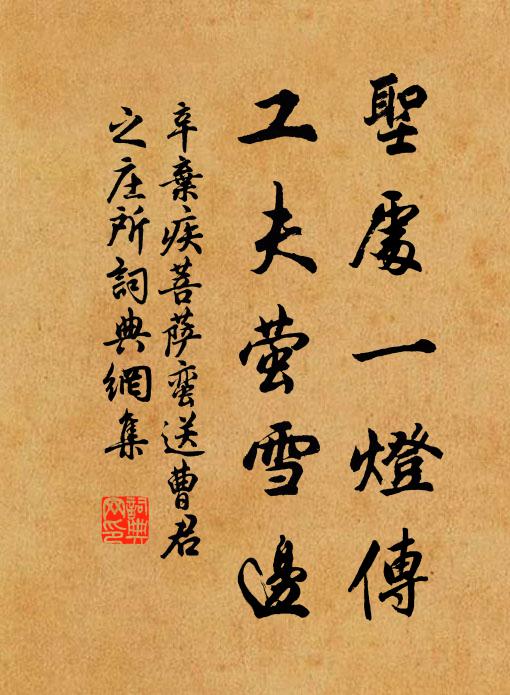 聖處一燈傳
工夫萤雪邊
辛棄疾菩萨蠻送曹君
之庄所詞典網集
詞典
网印